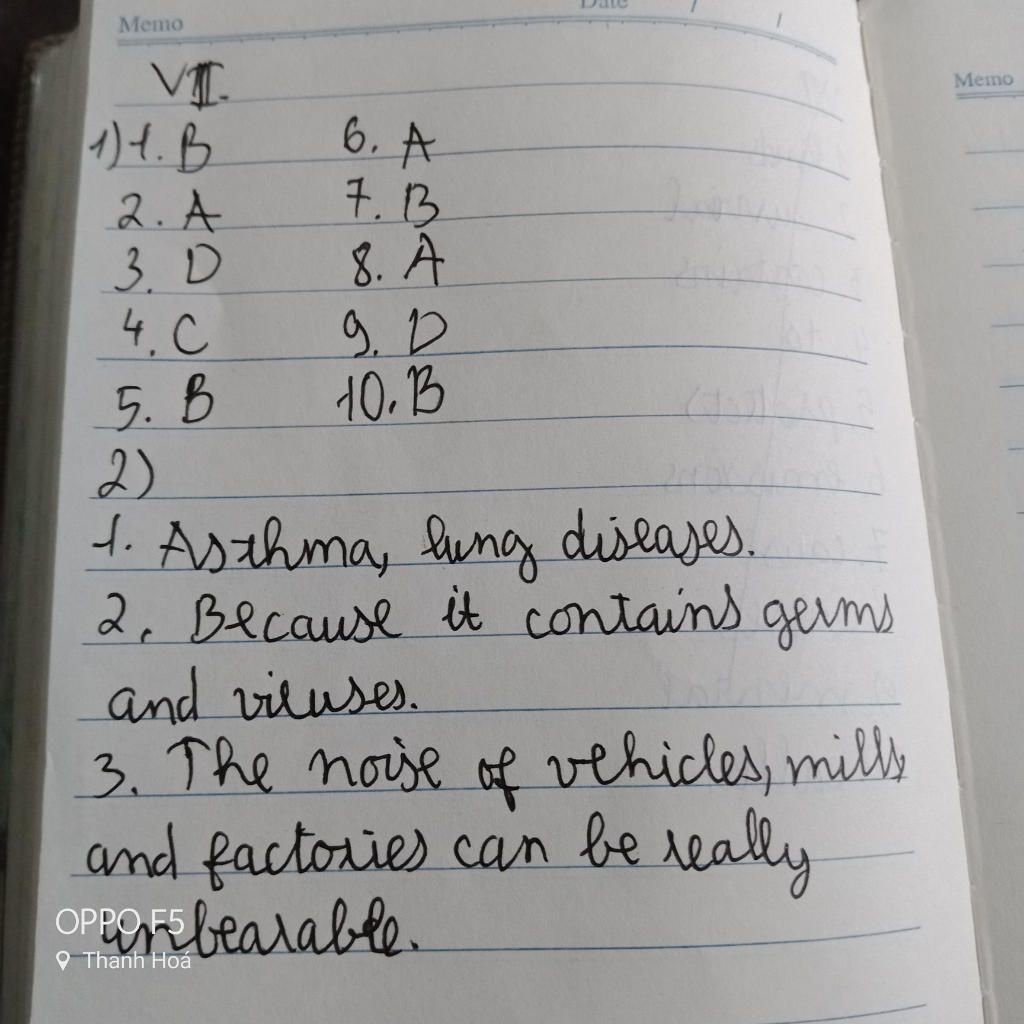 Memo
Date / /
VII.
1) 1. B 6. A
2. A 7. B
3. D 8. A
4. C 9. D
5. B 10. B
2)
1. Asthma, lung diseases.
2. Because it contains germs
and viruses.
3. The noise of vehicles, mills
and factories can be really
unbearable.
OPPO F5
Thanh Hoá
Memo